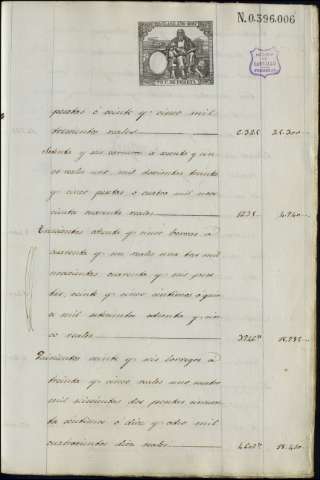 N.0.396.006
pesetas ó veinte y cinco mil
trescientos reales 25.300
Setenta y seis carneros á sesenta y cin
co reales uno, mil doscientas treinta
y cinco pesetas, ó cuatro mil nove
cientos cuarenta reales 1235 4.940
Trescientos ochenta y cinco borros á
cuarenta y un reales uno tres mil
novecientas cuarenta y seis pese
tas, veinte y cinco céntimos o quin
ce mil setecientos ochenta y cin
co reales 15.785
Quinientos veinte y seis borregos á
treinta y cinco reales uno cuatro
mil seiscientas dos pesetas, cincuen
ta céntimos o diez y ocho mil
cuatrocientos diez reales 18.410